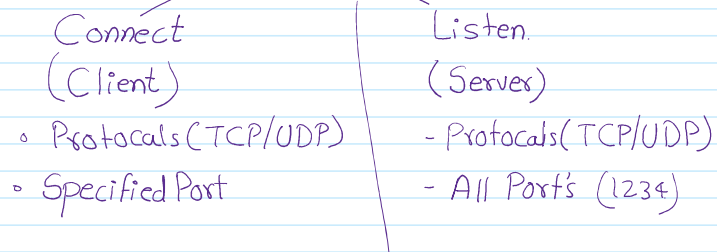 Connect
(Client)
• Protocals (TCP/UDP)
• Specified Port
Listen.
(Server)
- Protocals (TCP/UDP)
- All Port's (1234)